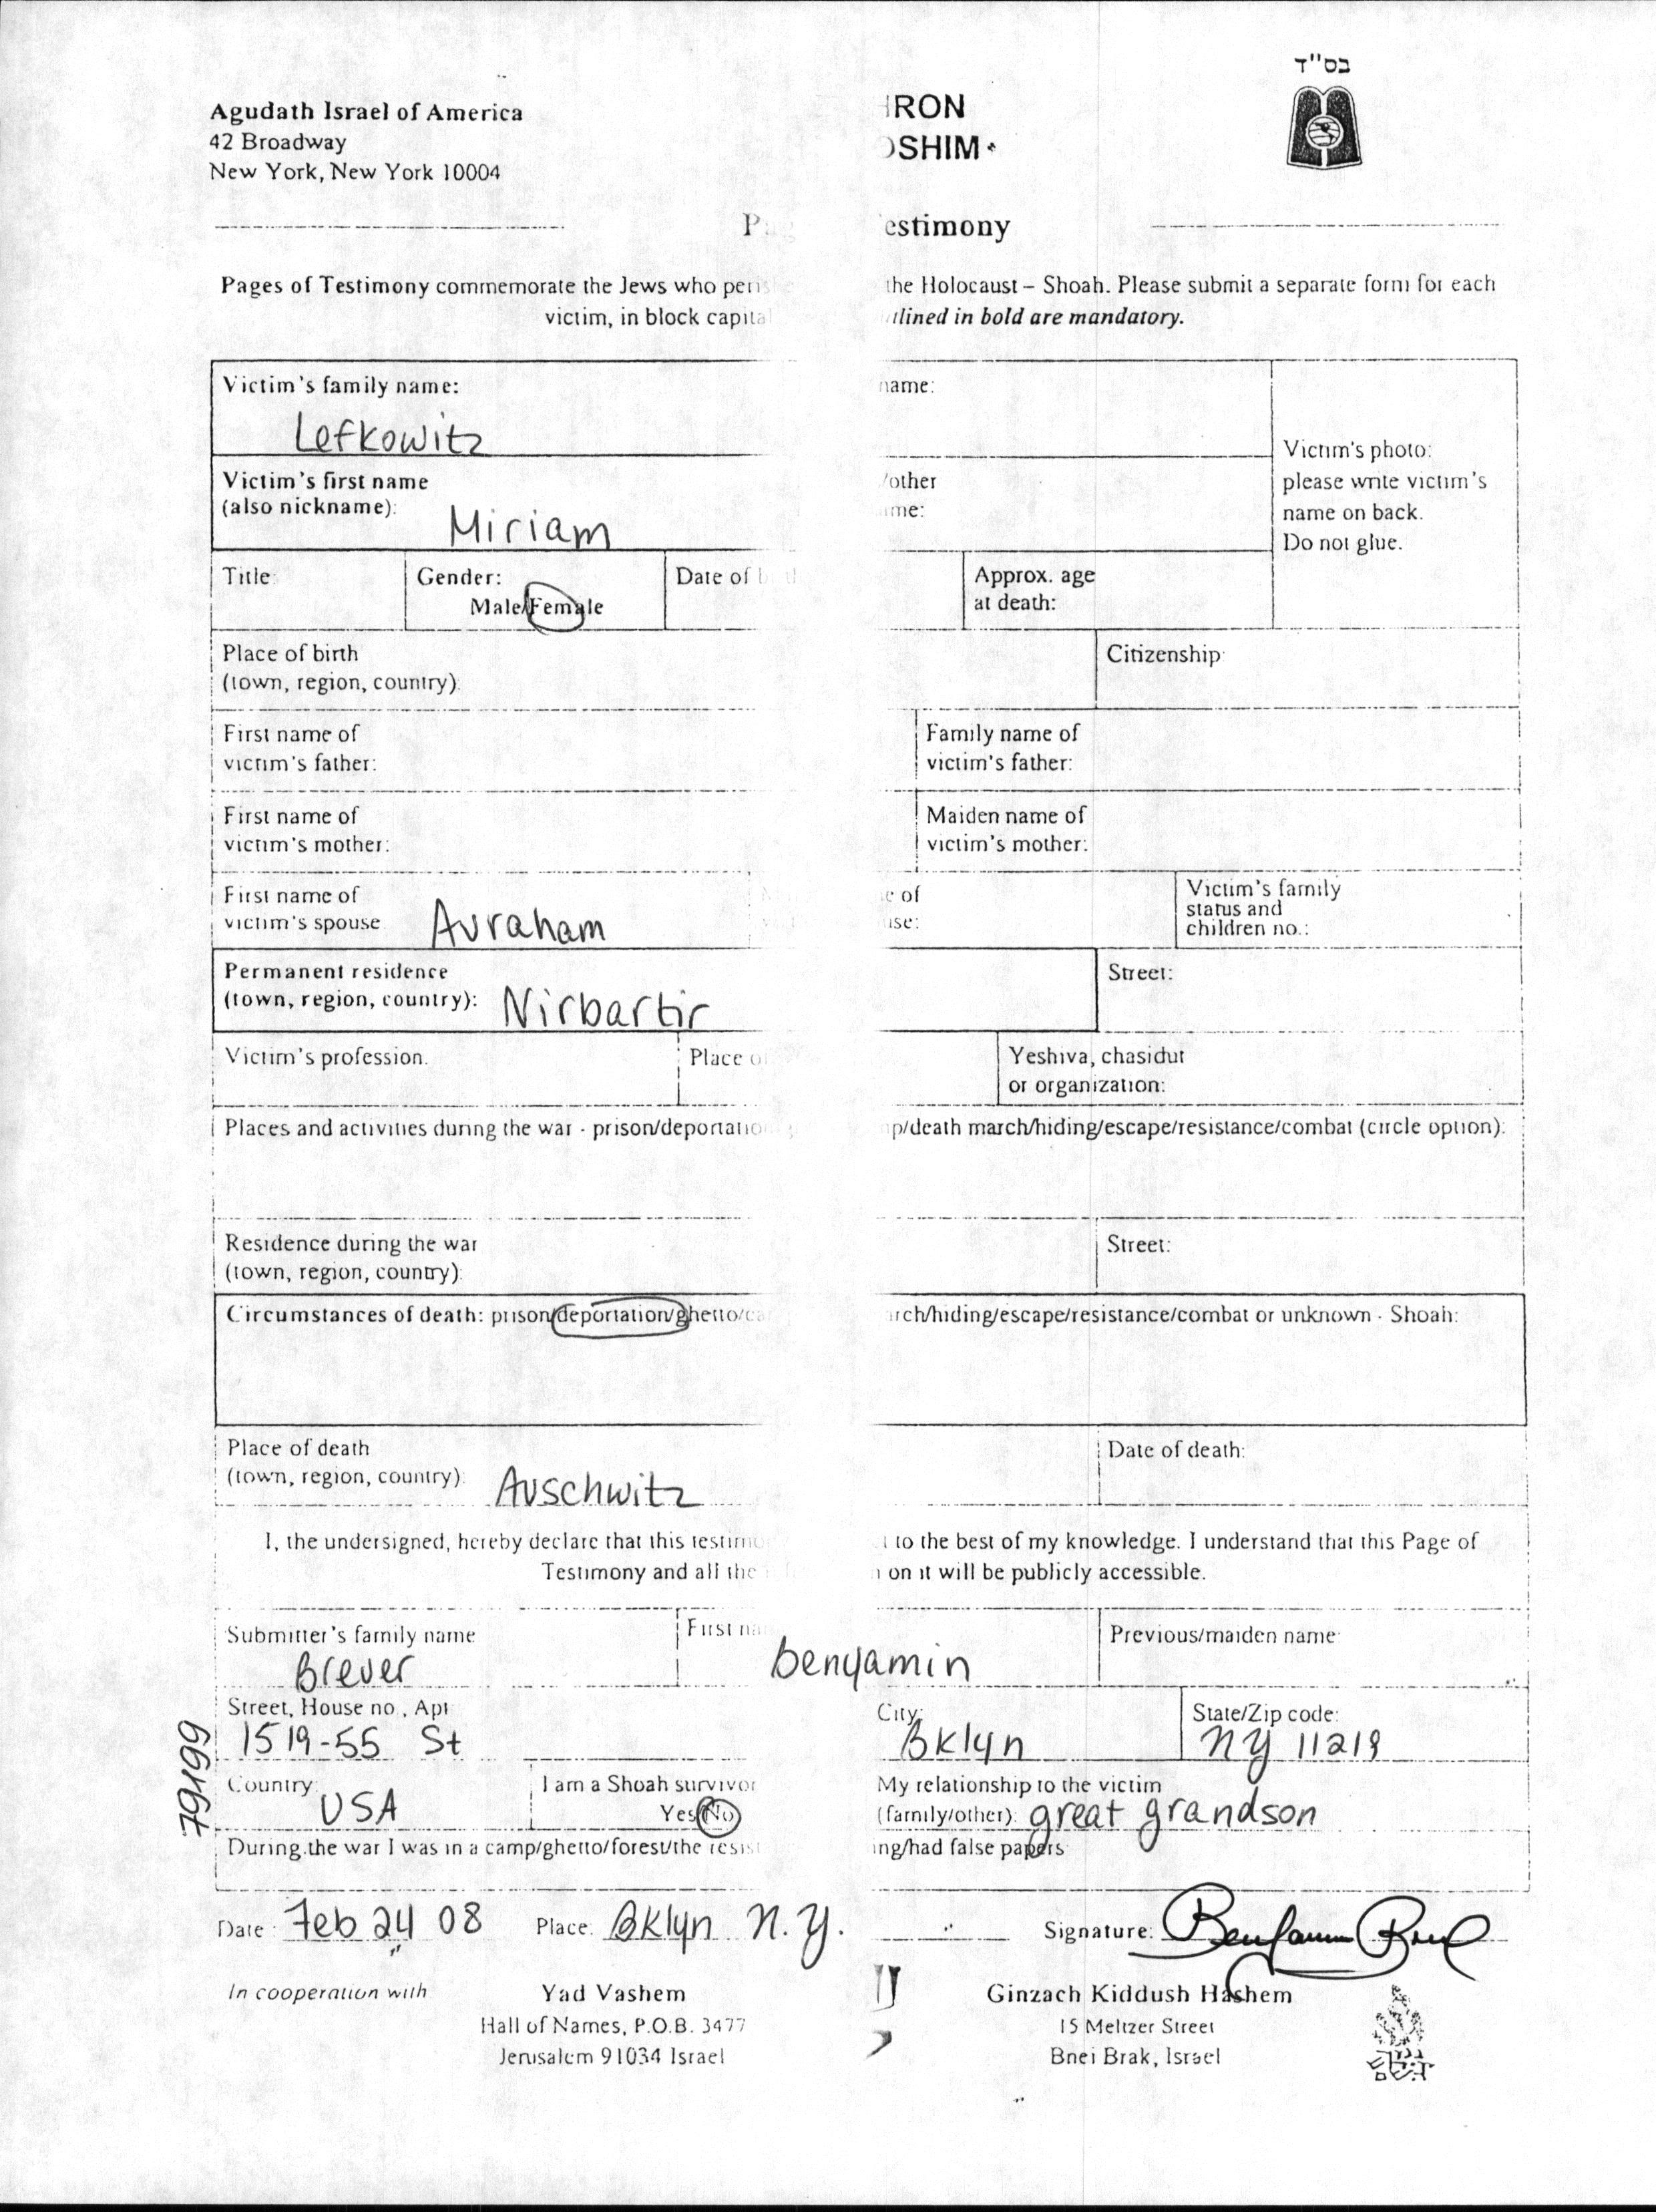 בס"ד
Agudath Israel of America
42 Broadway
New York, New York 10004
IRON
OSHIM
estimony
Pages of Testimony commemorate the Jews who peris the Holocaust – Shoah. Please submit a separate form for each
victim, in block capital tlined in bold are mandatory.
Victim's family name: name:
Lefkowitz
Victim's photo:
please write victim's
name on back.
Do not glue.
Victim's first name /other
(also nickname): Miriam me:
Title: Gender: Date of Approx. age
Male/Female at death:
Place of birth Citizenship:
(town, region, country):
First name of Family name of
victim's father: victim's father:
First name of Maiden name of
victim's mother: victim's mother:
First name of e of Victim's family
victim's spouse Avraham use: status and
children no.:
Permanent residence Street:
(town, region, country): Nirbartir
Victim's profession. Place o Yeshiva, chasidut
or organization:
Places and activities during the war - prison/deportatio p/death march/hiding/escape/resistance/combat (circle option):
Residence during the war Street:
(town, region, country):
Circumstances of death: prison/deportation/ghetto/ca rch/hiding/escape/resistance/combat or unknown - Shoah:
Place of death Date of death:
(town, region, country): Auschwitz
I, the undersigned, hereby declare that this testimo t to the best of my knowledge. I understand that this Page of
Testimony and all the n on it will be publicly accessible.
Submitter's family name First na Previous/maiden name:
Brever benyamin
Street, House no., Apt City: State/Zip code:
1519-55 St Bklyn NY 11219
Country: I am a Shoah survivor My relationship to the victim
USA Yes/No (family/other): great grandson
During the war I was in a camp/ghetto/forest/the resist ing/had false papers
79199
Date: Feb 24 08 Place: Bklyn N.Y. Signature: Benjamin
In cooperation with Yad Vashem Ginzach Kiddush Hashem
Hall of Names, P.O.B. 3477 15 Meltzer Street
Jerusalem 91034 Israel Bnei Brak, Israel